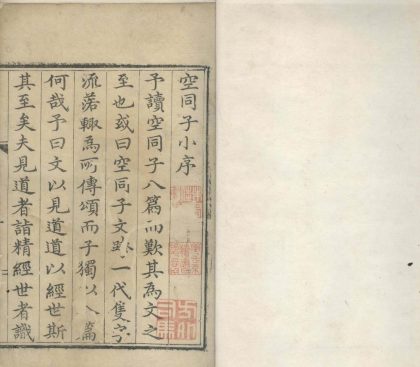 空同子小序
予讀空同子八篇而歎其為文之
至也或曰空同子文跨一代隻字
流落輒為所傳頌而子獨以八篇
何哉予曰文以見道道以經世斯
其至矣夫見道者詣精經世者識